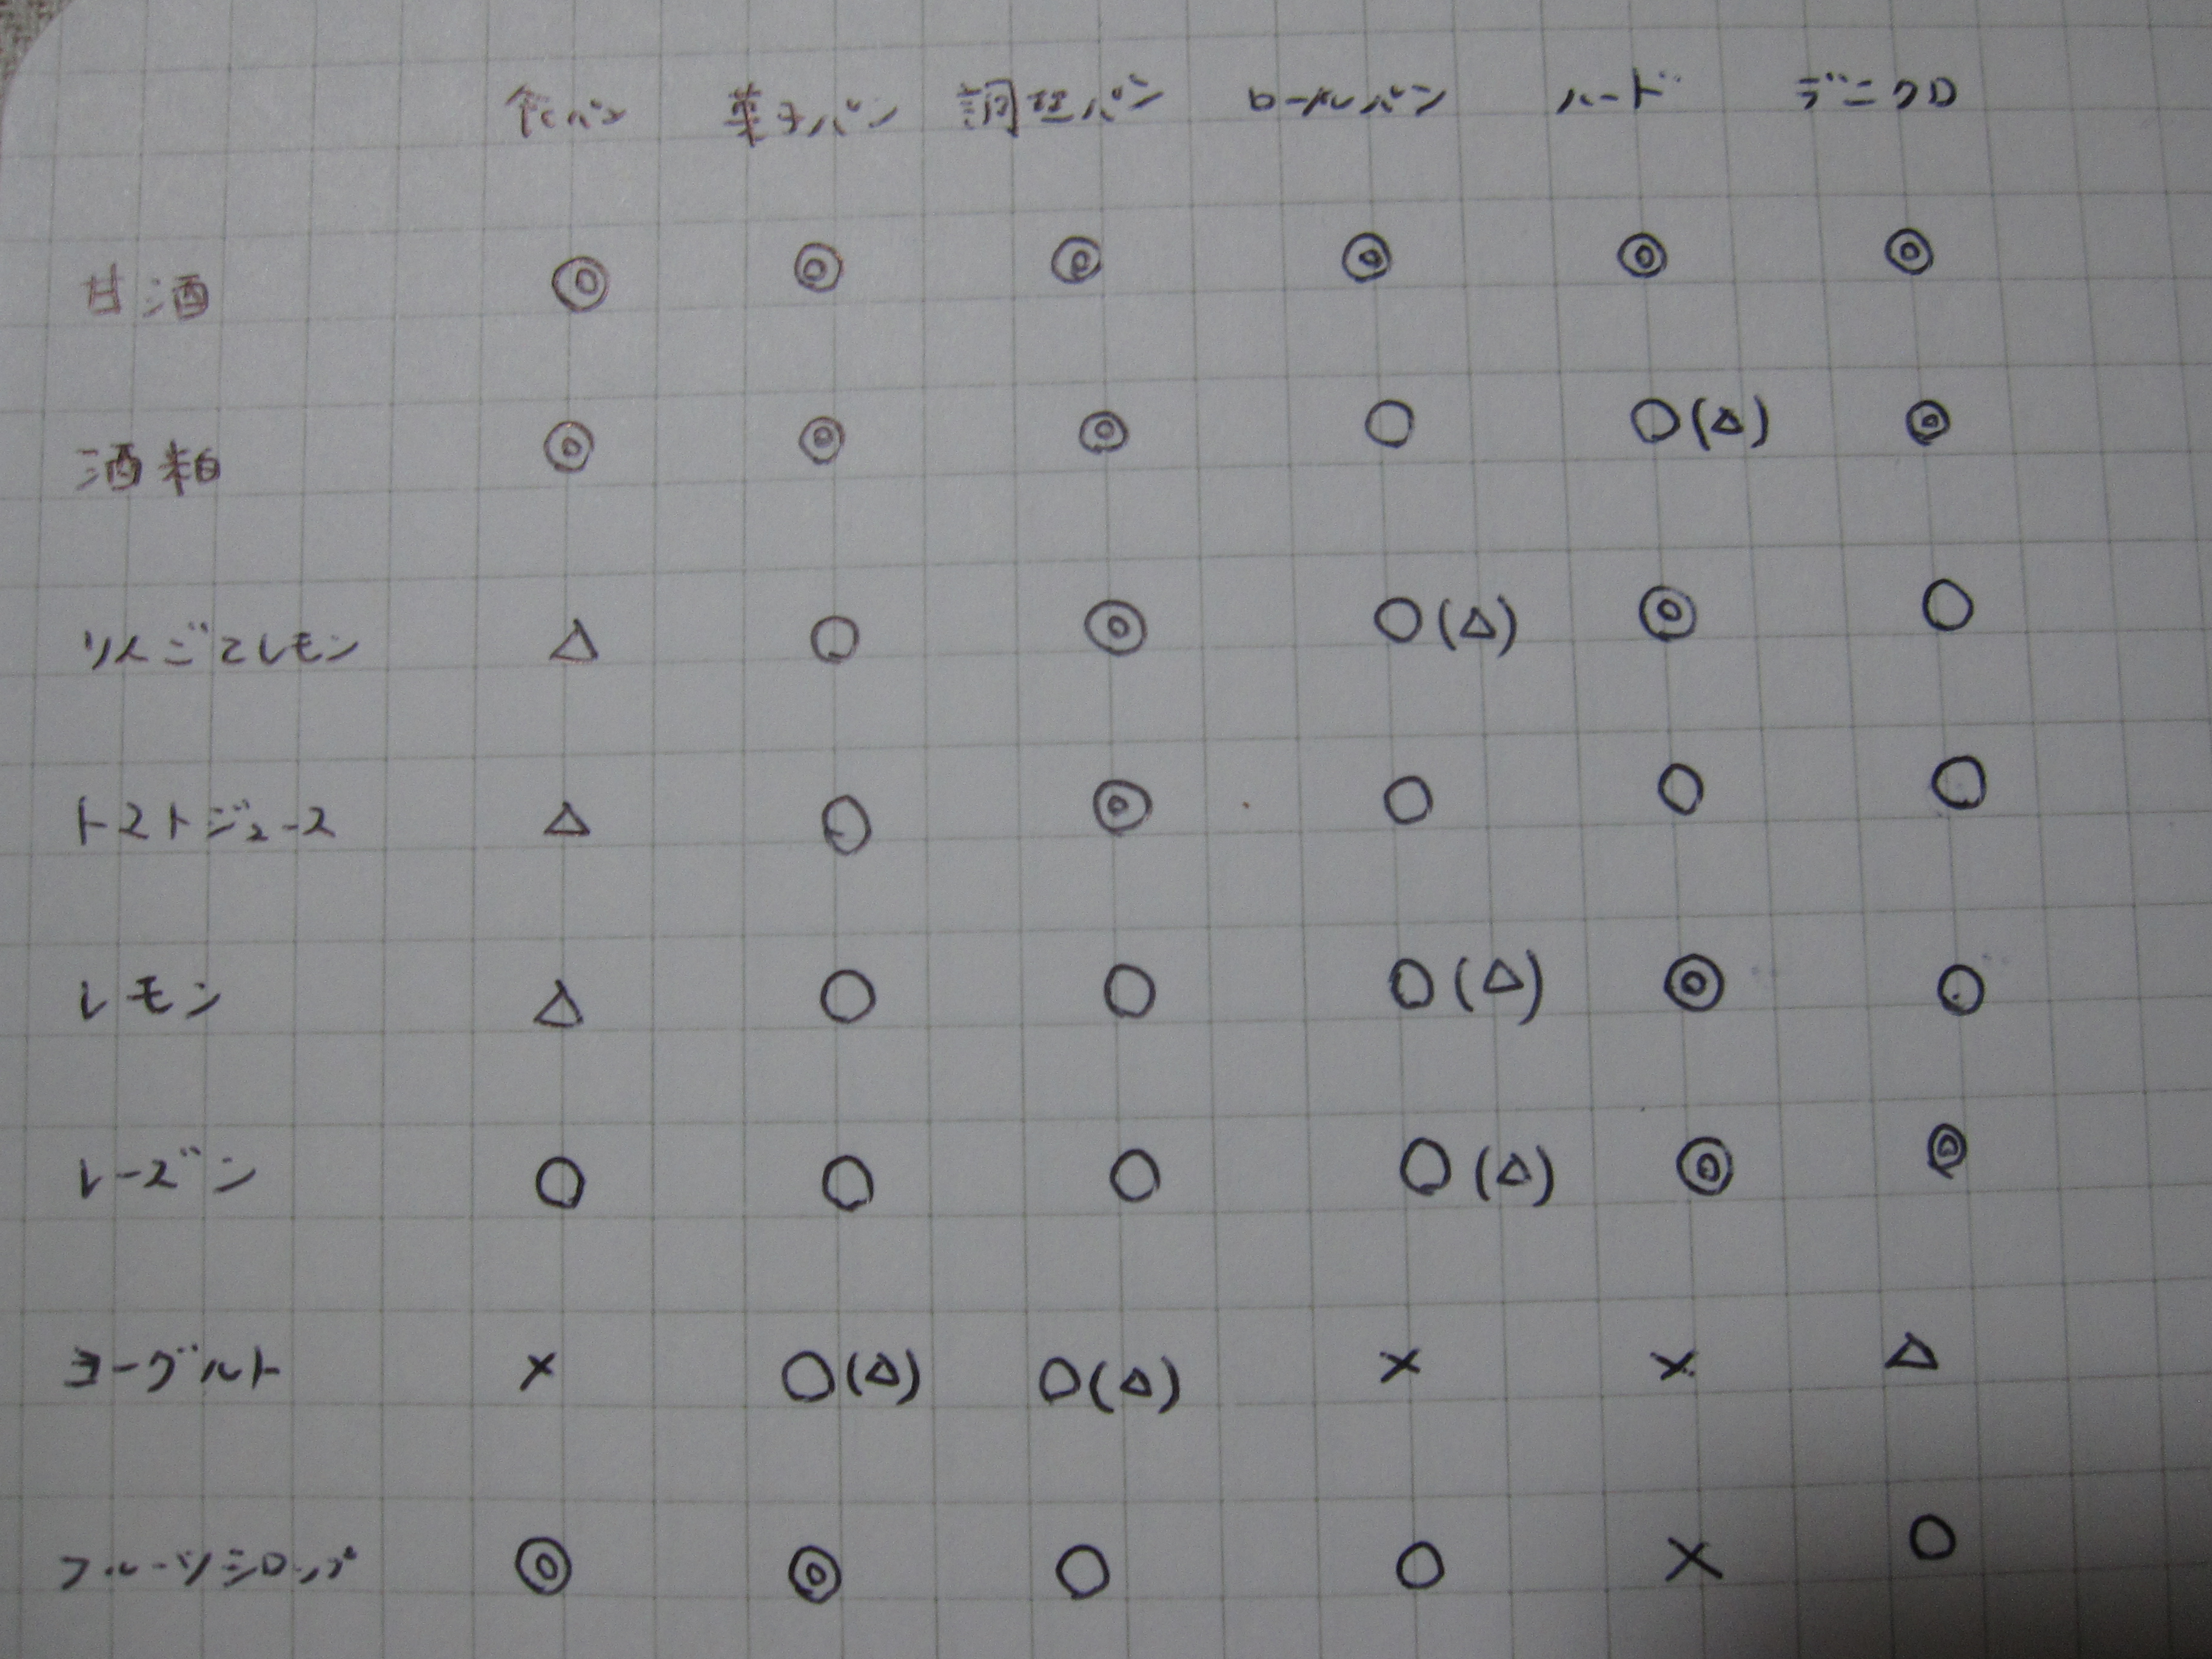 食パン 菓子パン 調理パン ロールパン ハード デニクロ
甘酒 ◎ ◎ ◎ ◎ ◎ ◎
酒粕 ◎ ◎ ◎ ○ ○(△) ◎
りんごとレモン △ ○ ◎ ○(△) ◎ ○
トマトジュース △ ○ ◎ ○ ○ ○
レモン △ ○ ○ ○(△) ◎ ○
レーズン ○ ○ ○ ○(△) ◎ ◎
ヨーグルト × ○(△) ○(△) × × △
フルーツシロップ ◎ ◎ ○ ○ × ○